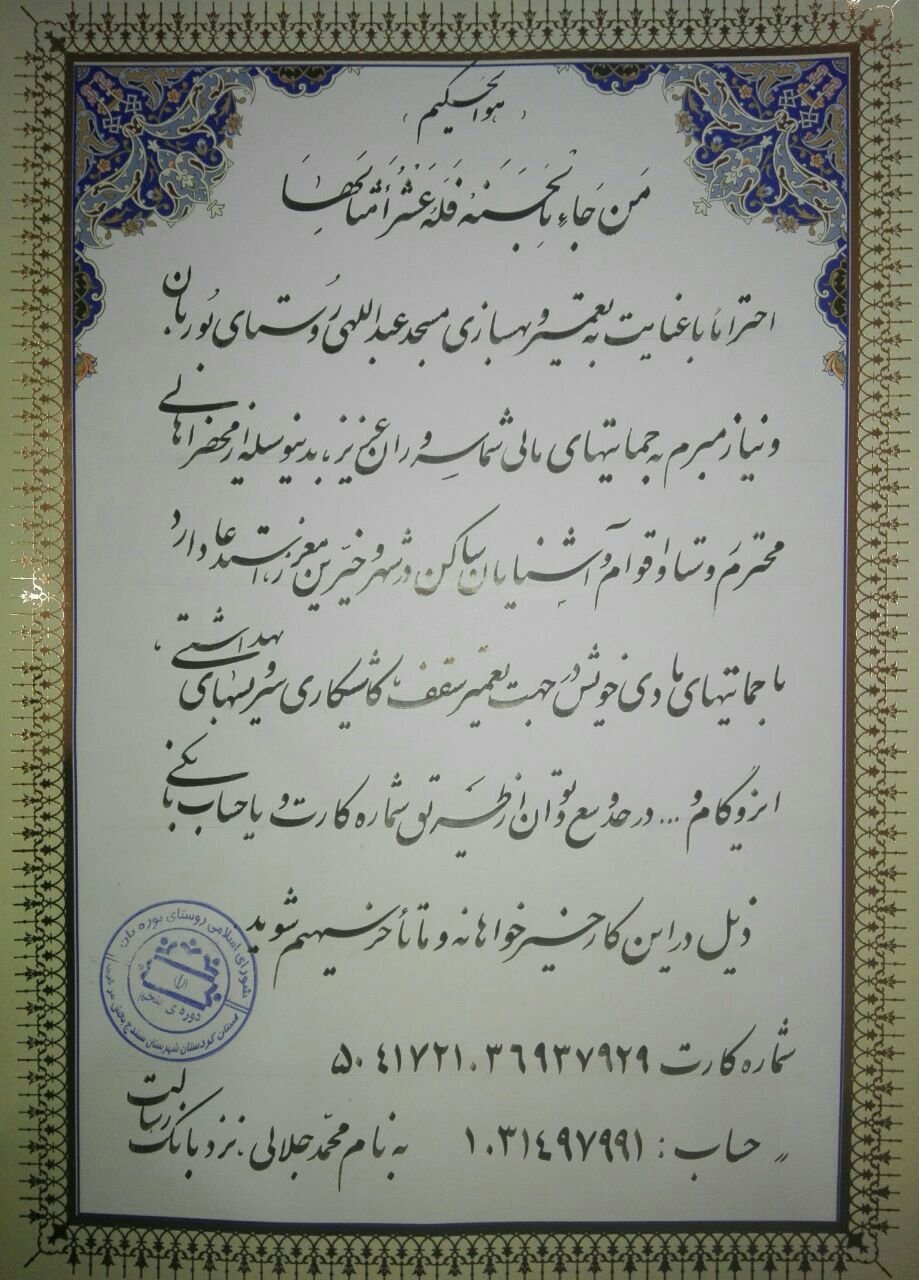 هوالحکیم
مَن جَاءَ بِالحَسَنَهِ فَلَهُ عَشْرُ أَمثَالِهَا
احتراماً با عنایت به تعمیر و بهسازی مسجد عبداللهی روستای نوره بان
و نیاز مبرم به حمایتهای مالی شما سروران عزیز، بدینوسیله از محضر اهالی
محترم روستا و اقوام و آشنایان ساکن در شهر و خیّرین معزز استدعا دارد
با حمایتهای مادی خویش در جهت تعمیر سقف، کاشیکاری سرویسهای بهداشتی،
ایزوگام و ... در حد وسع و توان از طریق شماره کارت و یا حساب بانکی
ذیل در این کار خیرخواهانه و ماتأخر سهیم شوید
شماره کارت ۵۰۴۱۷۲۱۰۳۶۹۳۷۹۲۹
〃 حساب : ۱۰۳۱۴۹۷۹۹۱ به نام محمّد جلالی، نزد بانک رسالت
شورای اسلامی روستای نوره بان
دوره ی پنجم
استان کردستان شهرستان سنندج بخش